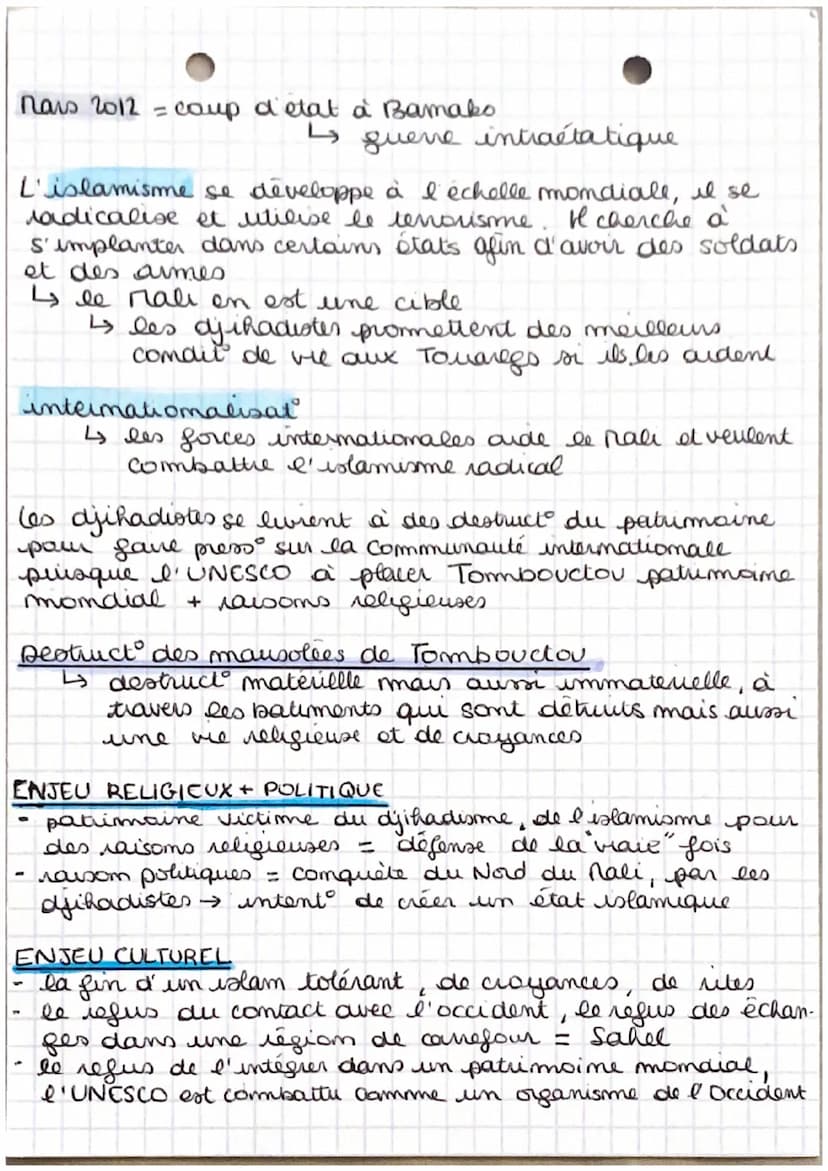 Mars 2012 = coup d'état à Bamako
↳ guerre intraétatique
L'islamisme se développe à l'échelle mondiale, il se
radicalise et utilise le terrorisme. Il cherche à
s'implanter dans certains états afin d'avoir des soldats
et des armes
↳ le Mali en est une cible
↳ les djihadistes promettent des meilleurs
condit° de vie aux Touaregs si ils les aident
internationalisat°
↳ les forces internationales aide le Mali et veulent
combattre l'islamisme radical
Les djihadistes se livrent à des destruct° du patrimoine
pour faire press° sur la communauté internationale
puisque l'UNESCO à placer Tombouctou patrimoine
mondial + raisons religieuses
Destruct° des mausolées de Tombouctou
↳ destruct° matérielle mais aussi immaterielle, à
travers les batiments qui sont détruits mais aussi
une vie religieuse et de croyances
ENJEU RELIGIEUX + POLITIQUE
- patrimoine victime du djihadisme, de l'islamisme pour
des raisons religieuses = défense de la "vraie" fois
- raison politiques = conquête du Nord du Mali, par les
djihadistes → intent° de créer un état islamique
ENJEU CULTUREL
- la fin d'un islam tolérant, de croyances, de rites
- le refus du contact avec l'occident, le refus des échan-
ges dans une région de carrefour = Sahel
- le refus de l'intégrer dans un patrimoine mondial,
l'UNESCO est combattu comme un organisme de l'Occident